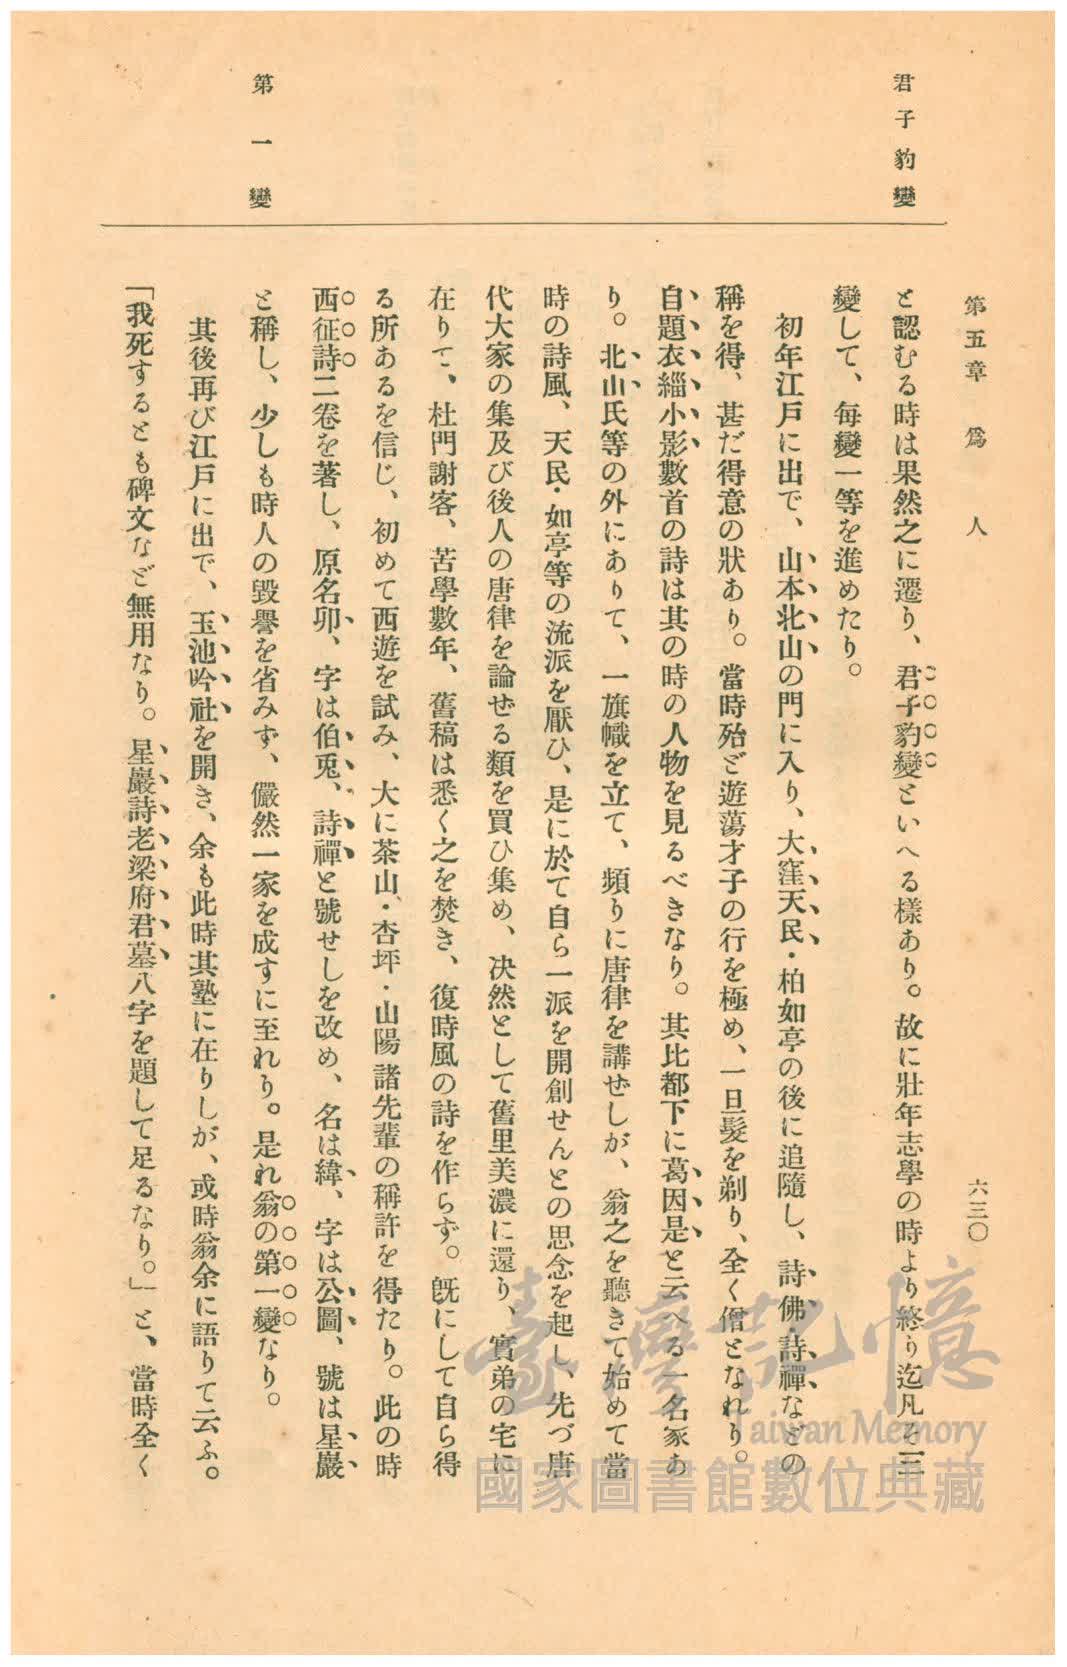 君子豹變
第一變
第五章　爲人　六三〇
と認むる時は果然之に遷り、君子豹變といへる樣あり。故に壯年志學の時より終り迄凡そ三
變して、每變一等を進めたり。
初年江戶に出で、山本北山の門に入り、大窪天民・柏如亭の後に追隨し、詩佛・詩禪などの
稱を得、甚だ得意の狀あり。當時殆ど遊蕩才子の行を極め、一旦髮を剃り、全く僧となれり。
自題衣緇小影數首の詩は其の時の人物を見るべきなり。其比都下に葛因是と云へる一名家あ
り。北山氏等の外にありて、一旗幟を立て、頻りに唐律を講ぜしが、翁之を聽きて始めて當
時の詩風、天民・如亭等の流派を厭ひ、是に於て自ら一派を開創せんとの思念を起し、先づ唐
代大家の集及び後人の唐律を論ぜる類を買ひ集め、决然として舊里美濃に還り、實弟の宅に
在りて、杜門謝客、苦學數年、舊稿は悉く之を焚き、復時風の詩を作らず。旣にして自ら得
る所あるを信じ、初めて西遊を試み、大に茶山・杏坪・山陽諸先輩の稱許を得たり。此の時
西征詩二卷を著し、原名卯、字は伯兎、詩禪と號せしを改め、名は緯、字は公圖、號は星巖
と稱し、少しも時人の毀譽を省みず、儼然一家を成すに至れり。是れ翁の第一變なり。
其後再び江戶に出で、玉池吟社を開き、余も此時其塾に在りしが、或時翁余に語りて云ふ。
「我死するとも碑文など無用なり。星巖詩老梁府君墓八字を題して足るなり。」と、當時全く
臺灣記憶
Taiwan Memory
國家圖書館數位典藏